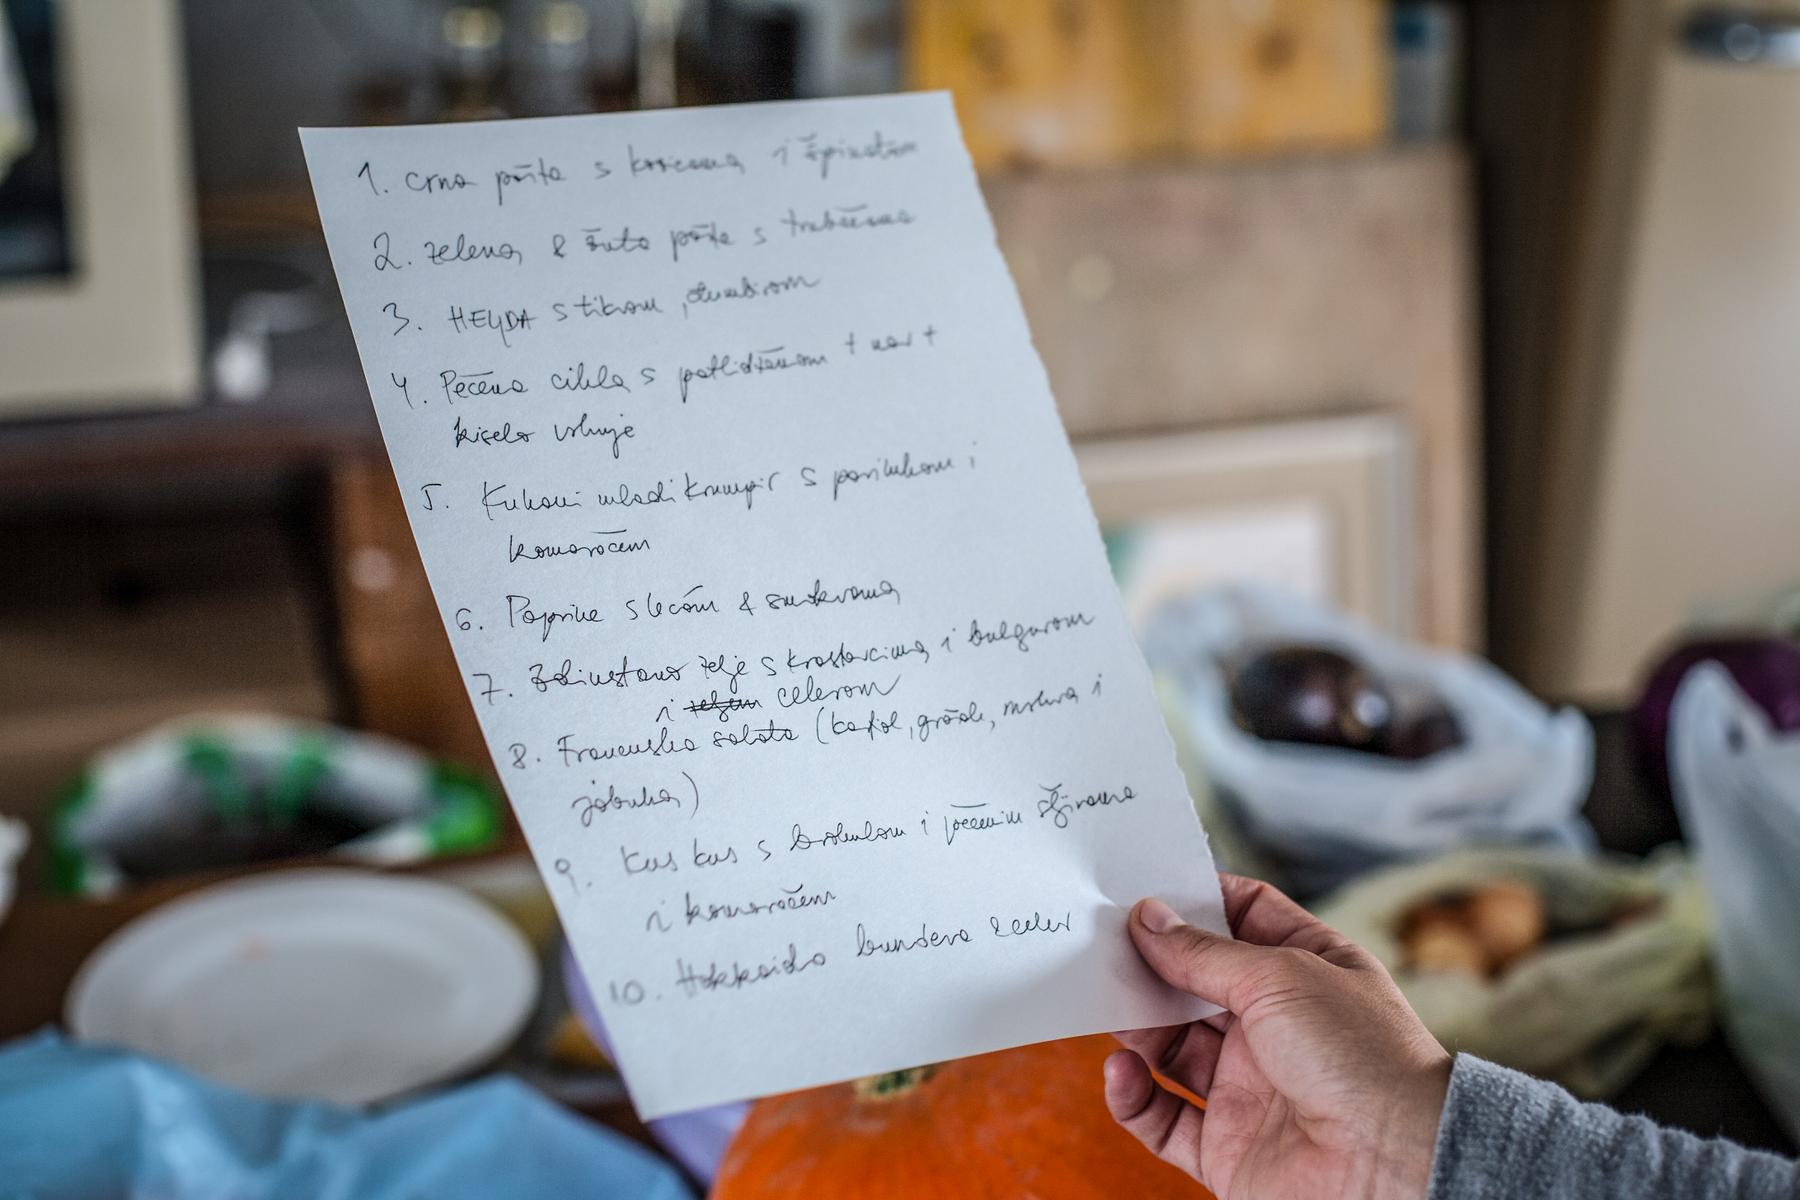 1. crna pašta s kozicama i špinatom
2. zelena & žuta pašta s
3. HELJDA s tikvom, đumbirom
4. Pečena cikla s patlidžanom + nar +
kiselo vrhnje
5. Kuhani mladi krumpir s porilukom i
komoračem
6. Paprike s lećom & smokvama
7. zelje s krastavcima i bulgurom
i zeljem celerom
8. Francuska salata (karfiol, grašak, mrkva i
jabuka)
9. Kus kus s brokulom i pečenim šljivama
i komoračem
10. Hokkaido bundeva celer